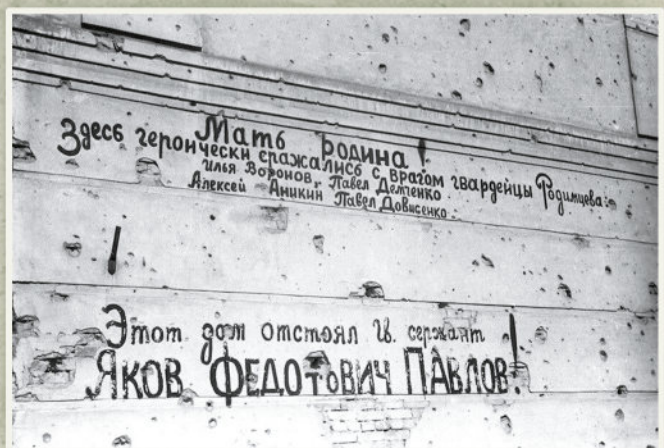 Мать Родина!
Здесь героически сражались с врагом гвардейцы Родимцева:
Илья Воронов, Павел Демченко
Алексей Аникин Павел Довисенко.
Этот дом отстоял гв. сержант
ЯКОВ ФЕДОТОВИЧ ПАВЛОВ!